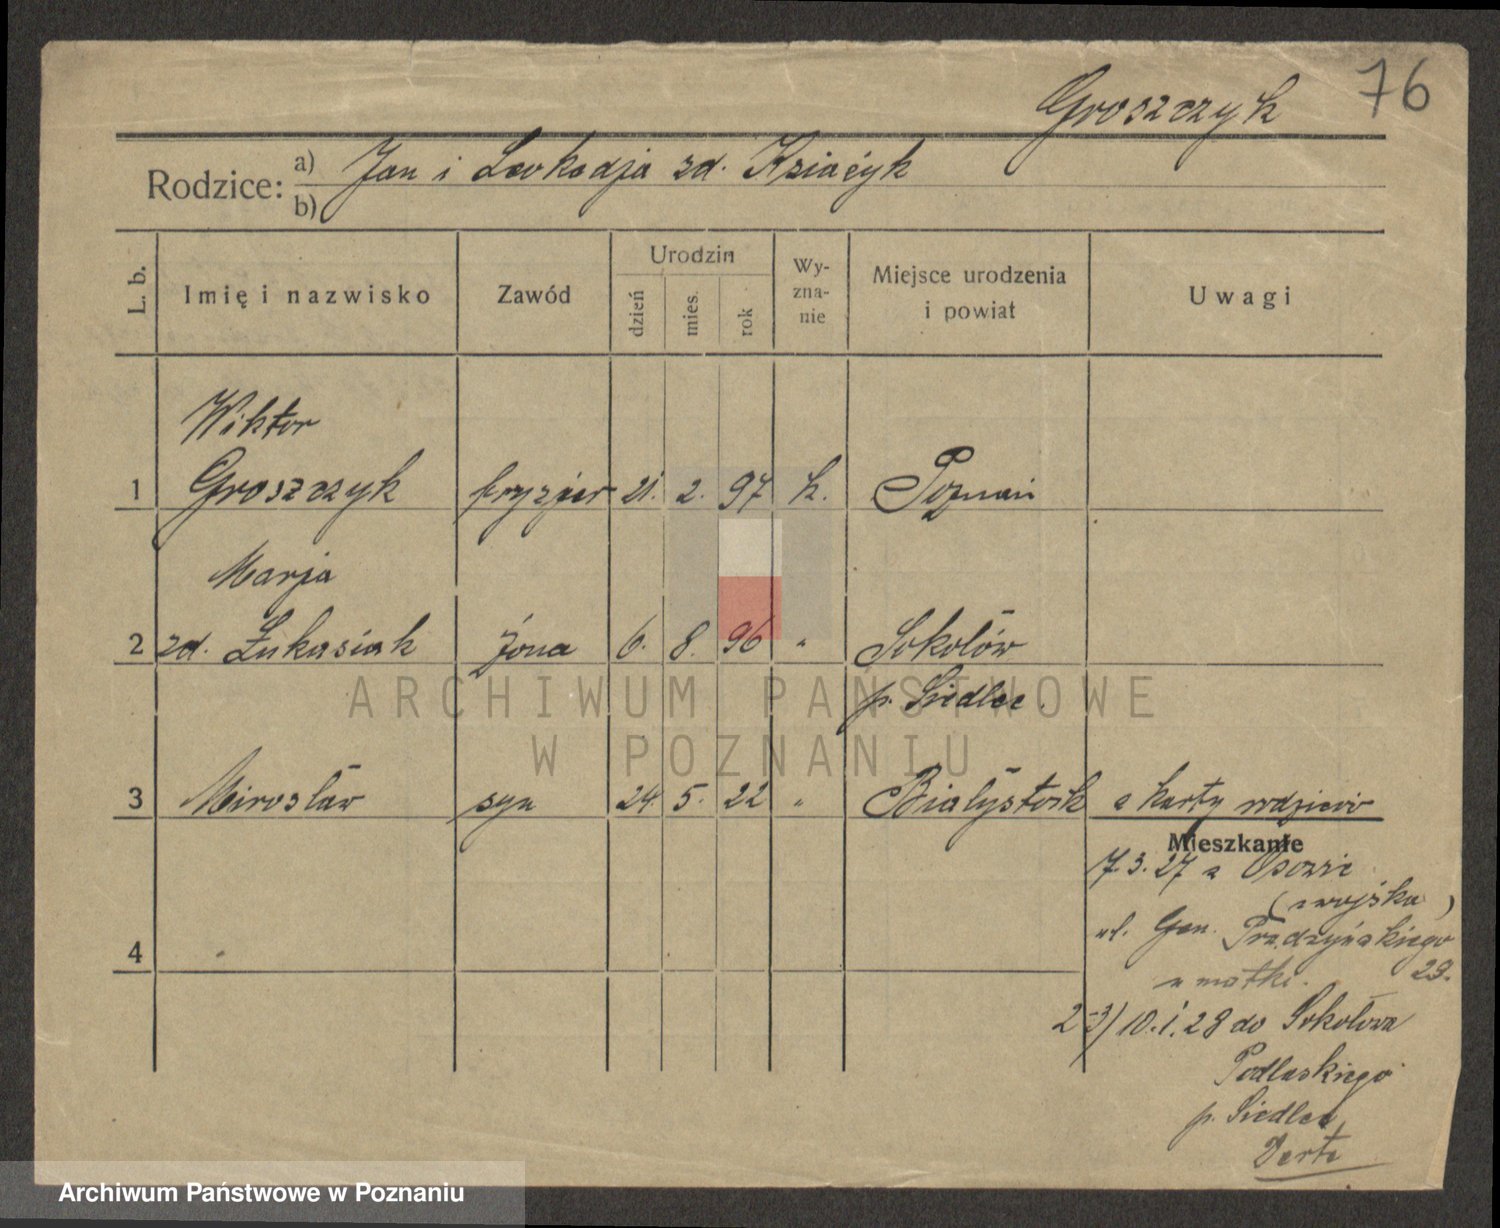 76
Groszczyk
Rodzice: a) Jan i Leokadja zd. Książyk
b)
L. b.
Imię i nazwisko
Zawód
Urodzin
dzień
mies.
rok
Wy-
zna-
nie
Miejsce urodzenia
i powiat
Uwagi
Wiktor
1 Groszczyk fryzjer 21. 2. 97 k. Poznań
Marja
2 zd. Łukasiak żona 6. 8. 96 " Sokołów
p. Siedlce.
3 Mirosław syn 24. 5. 22 " Białystok z karty rodziców
Mieszkanie
7.3.27 z
(z wojska)
ul. Gen. Prądzyńskiego
29.
u matki.
4
2-3) 10.1.28 do Sokołowa
Podlaskiego
p. Siedlce
Verte
ARCHIWUM PAŃSTWOWE
W POZNANIU
Archiwum Państwowe w Poznaniu